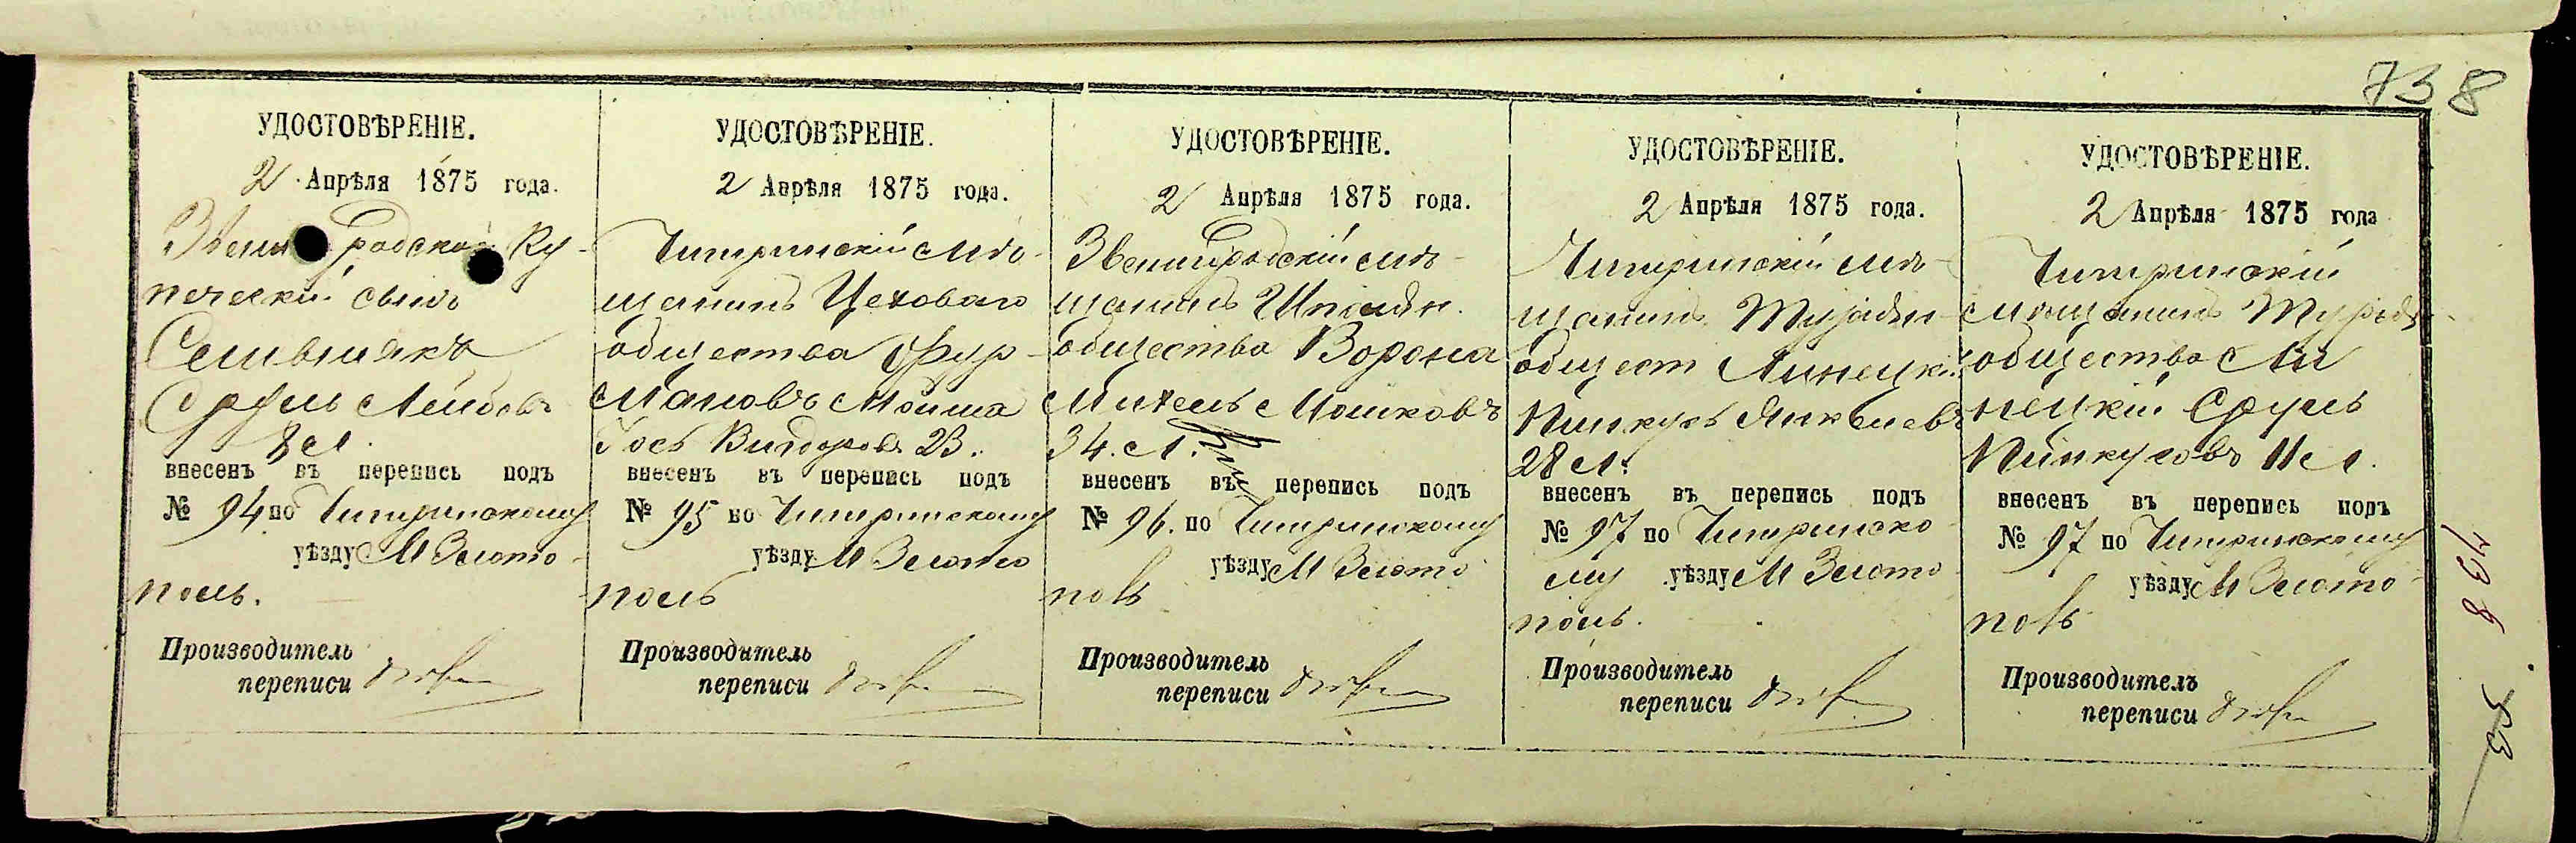 738
УДОСТОВѢРЕНІЕ.
2 Апрѣля 1875 года.
Звени родской Ку-
печескій сынъ
Селивнякъ
Сруль Лейбовъ
8 л.
внесенъ въ перепись подъ
№ 94 по Чигиринскому
уѣзду М Злато-
поль.
Производитель
переписи
УДОСТОВѢРЕНІЕ.
2 Апрѣля 1875 года.
Чигиринскій мѣ-
щанинъ Цеховаго
общества Фур-
мановъ Мойша
Гось Вигдоровъ 23.
внесенъ въ перепись подъ
№ 95 по Чигиринскому
уѣзду М Злато
поль
Производитель
переписи
УДОСТОВѢРЕНІЕ.
2 Апрѣля 1875 года.
Звенигродскій мѣ-
щанинъ Шполян.
общества Ворона
Михель Мошковъ
34. л.
внесенъ въ перепись подъ
№ 96. по Чигиринскому
уѣзду М Злато
поль
Производитель
переписи
УДОСТОВѢРЕНІЕ.
2 Апрѣля 1875 года.
Чигиринскій мѣ-
щанинъ
общест Линецкій
Пинкусъ Янкелевъ
28 л.
внесенъ въ перепись подъ
№ 97 по Чигиринско
му уѣзду М Злато
поль.
Производитель
переписи
УДОСТОВѢРЕНІЕ.
2 Апрѣля 1875 года
Чигиринскій
мѣщанинъ
общества Ли
нецкій Сруль
Пинкусовъ 11 л.
внесенъ въ перепись подъ
№ 97 по Чигиринскому
уѣзду М Злато-
поль
Производитель
переписи
738
53